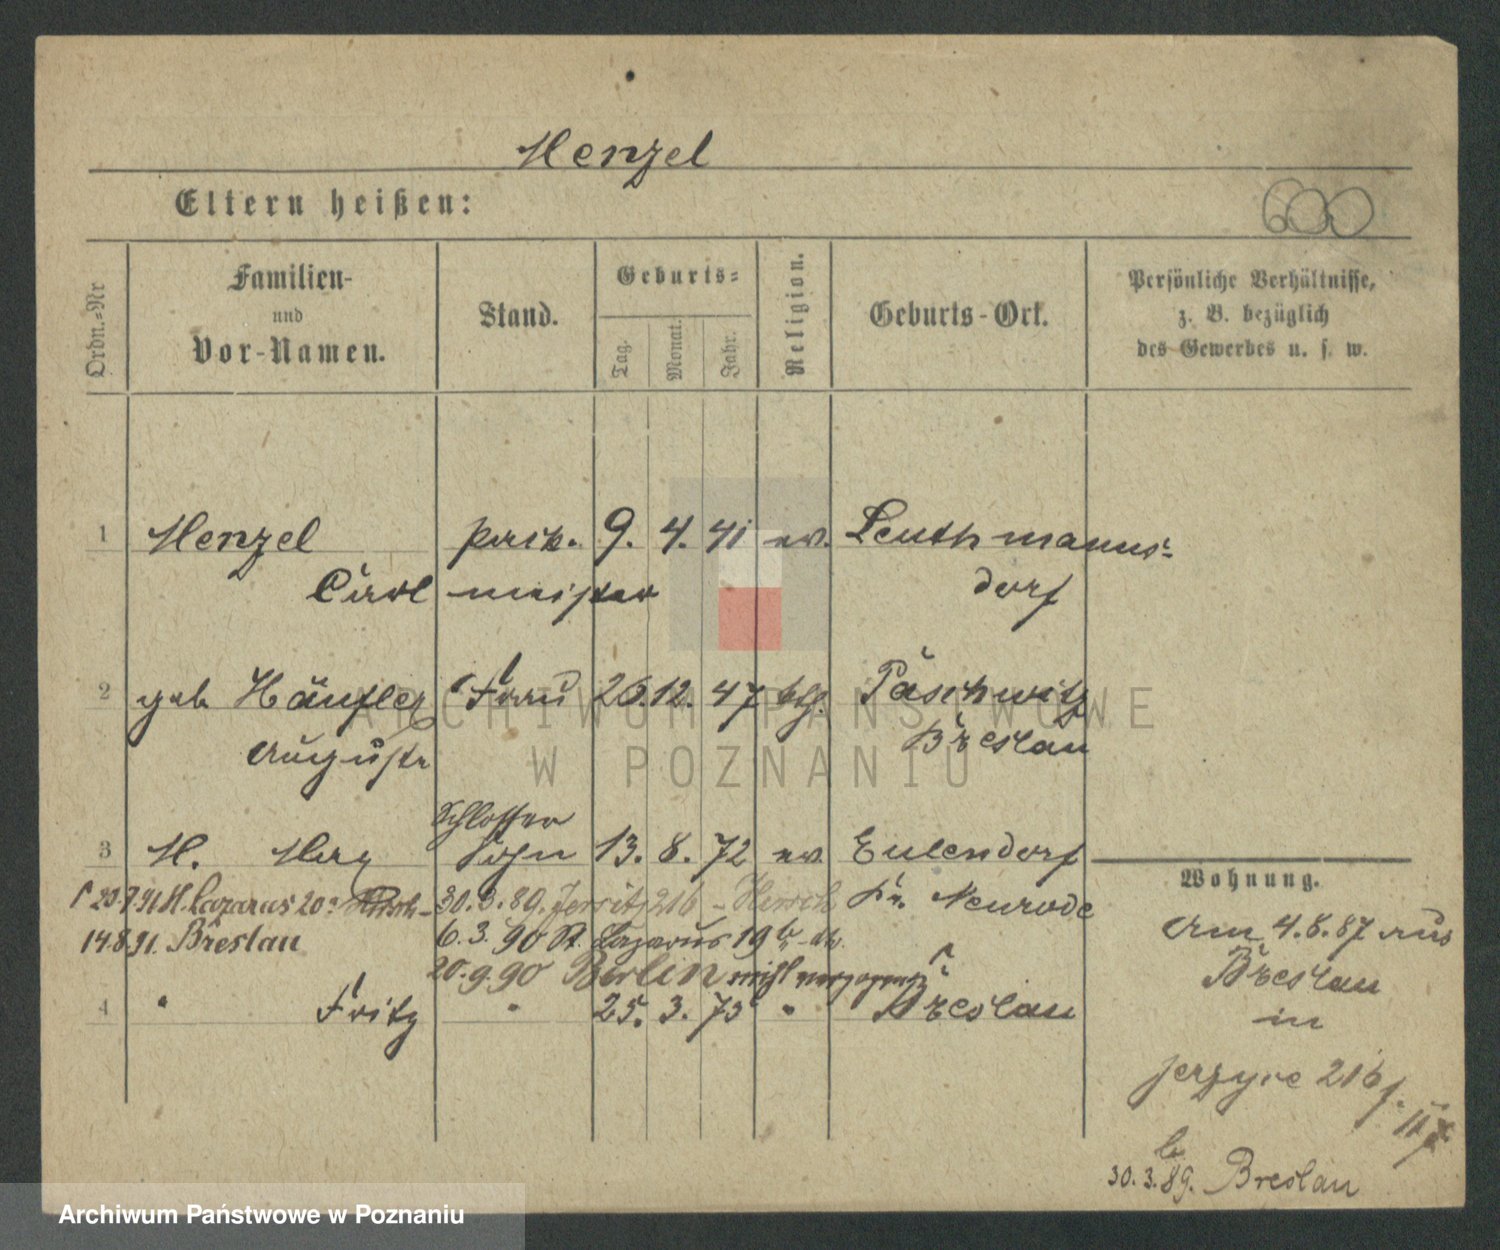 Menzel
Eltern heißen:
600
Ordn.-Nr
Familien-
und
Vor-Namen.
Stand.
Geburts-
Tag.
Monat.
Jahr.
Religion.
Geburts-Ort.
Persönliche Verhältnisse,
z. B. bezüglich
des Gewerbes u. s. w.
1 Menzel 9. 4. 41 ev. Leuthmanns-
Carl meister dorf
2 geb Frau 26. 12. 47 kth. Paschwitz
Auguste Breslau
Schlosser
3 M. Max Sohn 13. 8. 72 ev. Eulendorf
20.7.91 St. Lazarus 20a 30.3.89. Jersitz 216 - Kr. Neurode
14.8.91. Breslau 6.3.90 St. Lazarus 19
20.9.90 Berlin nicht
4 " Fritz " 25. 3. 75 " Breslau
Wohnung.
Am 4.8.87 aus
Breslau
in
Jerzyce 216
30.3.89. Breslau
ARCHIWUM PAŃSTWOWE
W POZNANIU
Archiwum Państwowe w Poznaniu